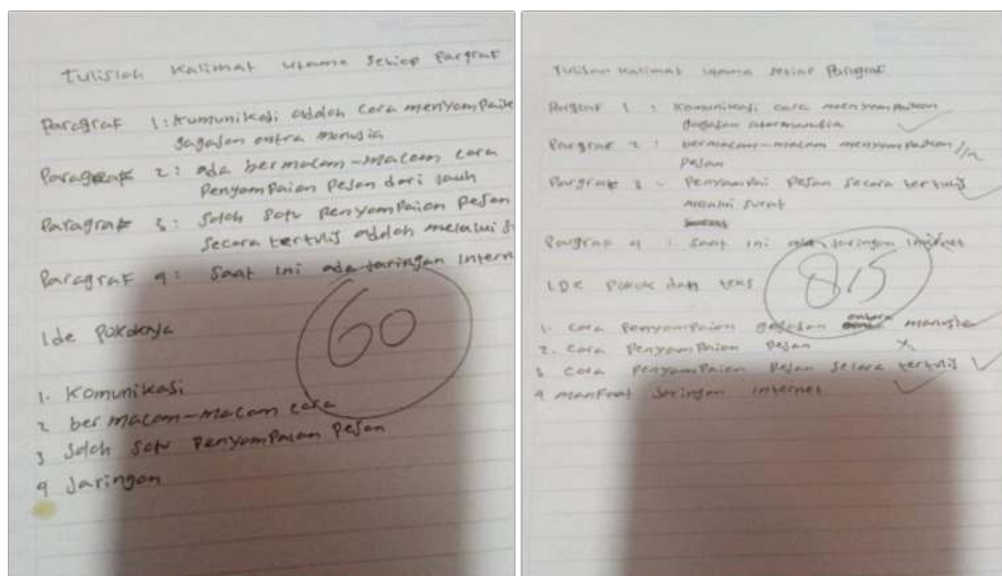 Tulislah kalimat utama setiap Pargraf
Paragraf 1: Kumunikasi adalah cara menyampaika
gagasan antra manusia
Paragraf 2: ada bermacam-macam cara
Penyampaian Pesan dari Jauh
Paragraf 3: Salah satu penyampaian pesan
secara tertulis adalah melalui s
Paragraf 4: Saat ini ada Jaringan Intern
60
Ide Pokoknya
1. Komunikasi
2 bermacam-macam cara
3 Salah satu Penyampaian Pesan
4 Jaringan
Tuliskan kalimat utama setiap Paragraf
Pargraf 1 : Komunikasi cara menyampaikan
gagasan
Pargraf 2 : bermacam-macam menyampaikan
Pesan
Pargraf 3 - Penyampai Pesan secara tertulis
melalui surat
Pargraf 4 : Saat ini adan Jaringan internet
85
IDe Pokok dan teks
1. Cara Penyampaian gagasan antara manusia
2. Cara Penyampaian Pesan
3 Cara Penyampaian Pesan secara tertulis
4 manfaat Jaringan internet